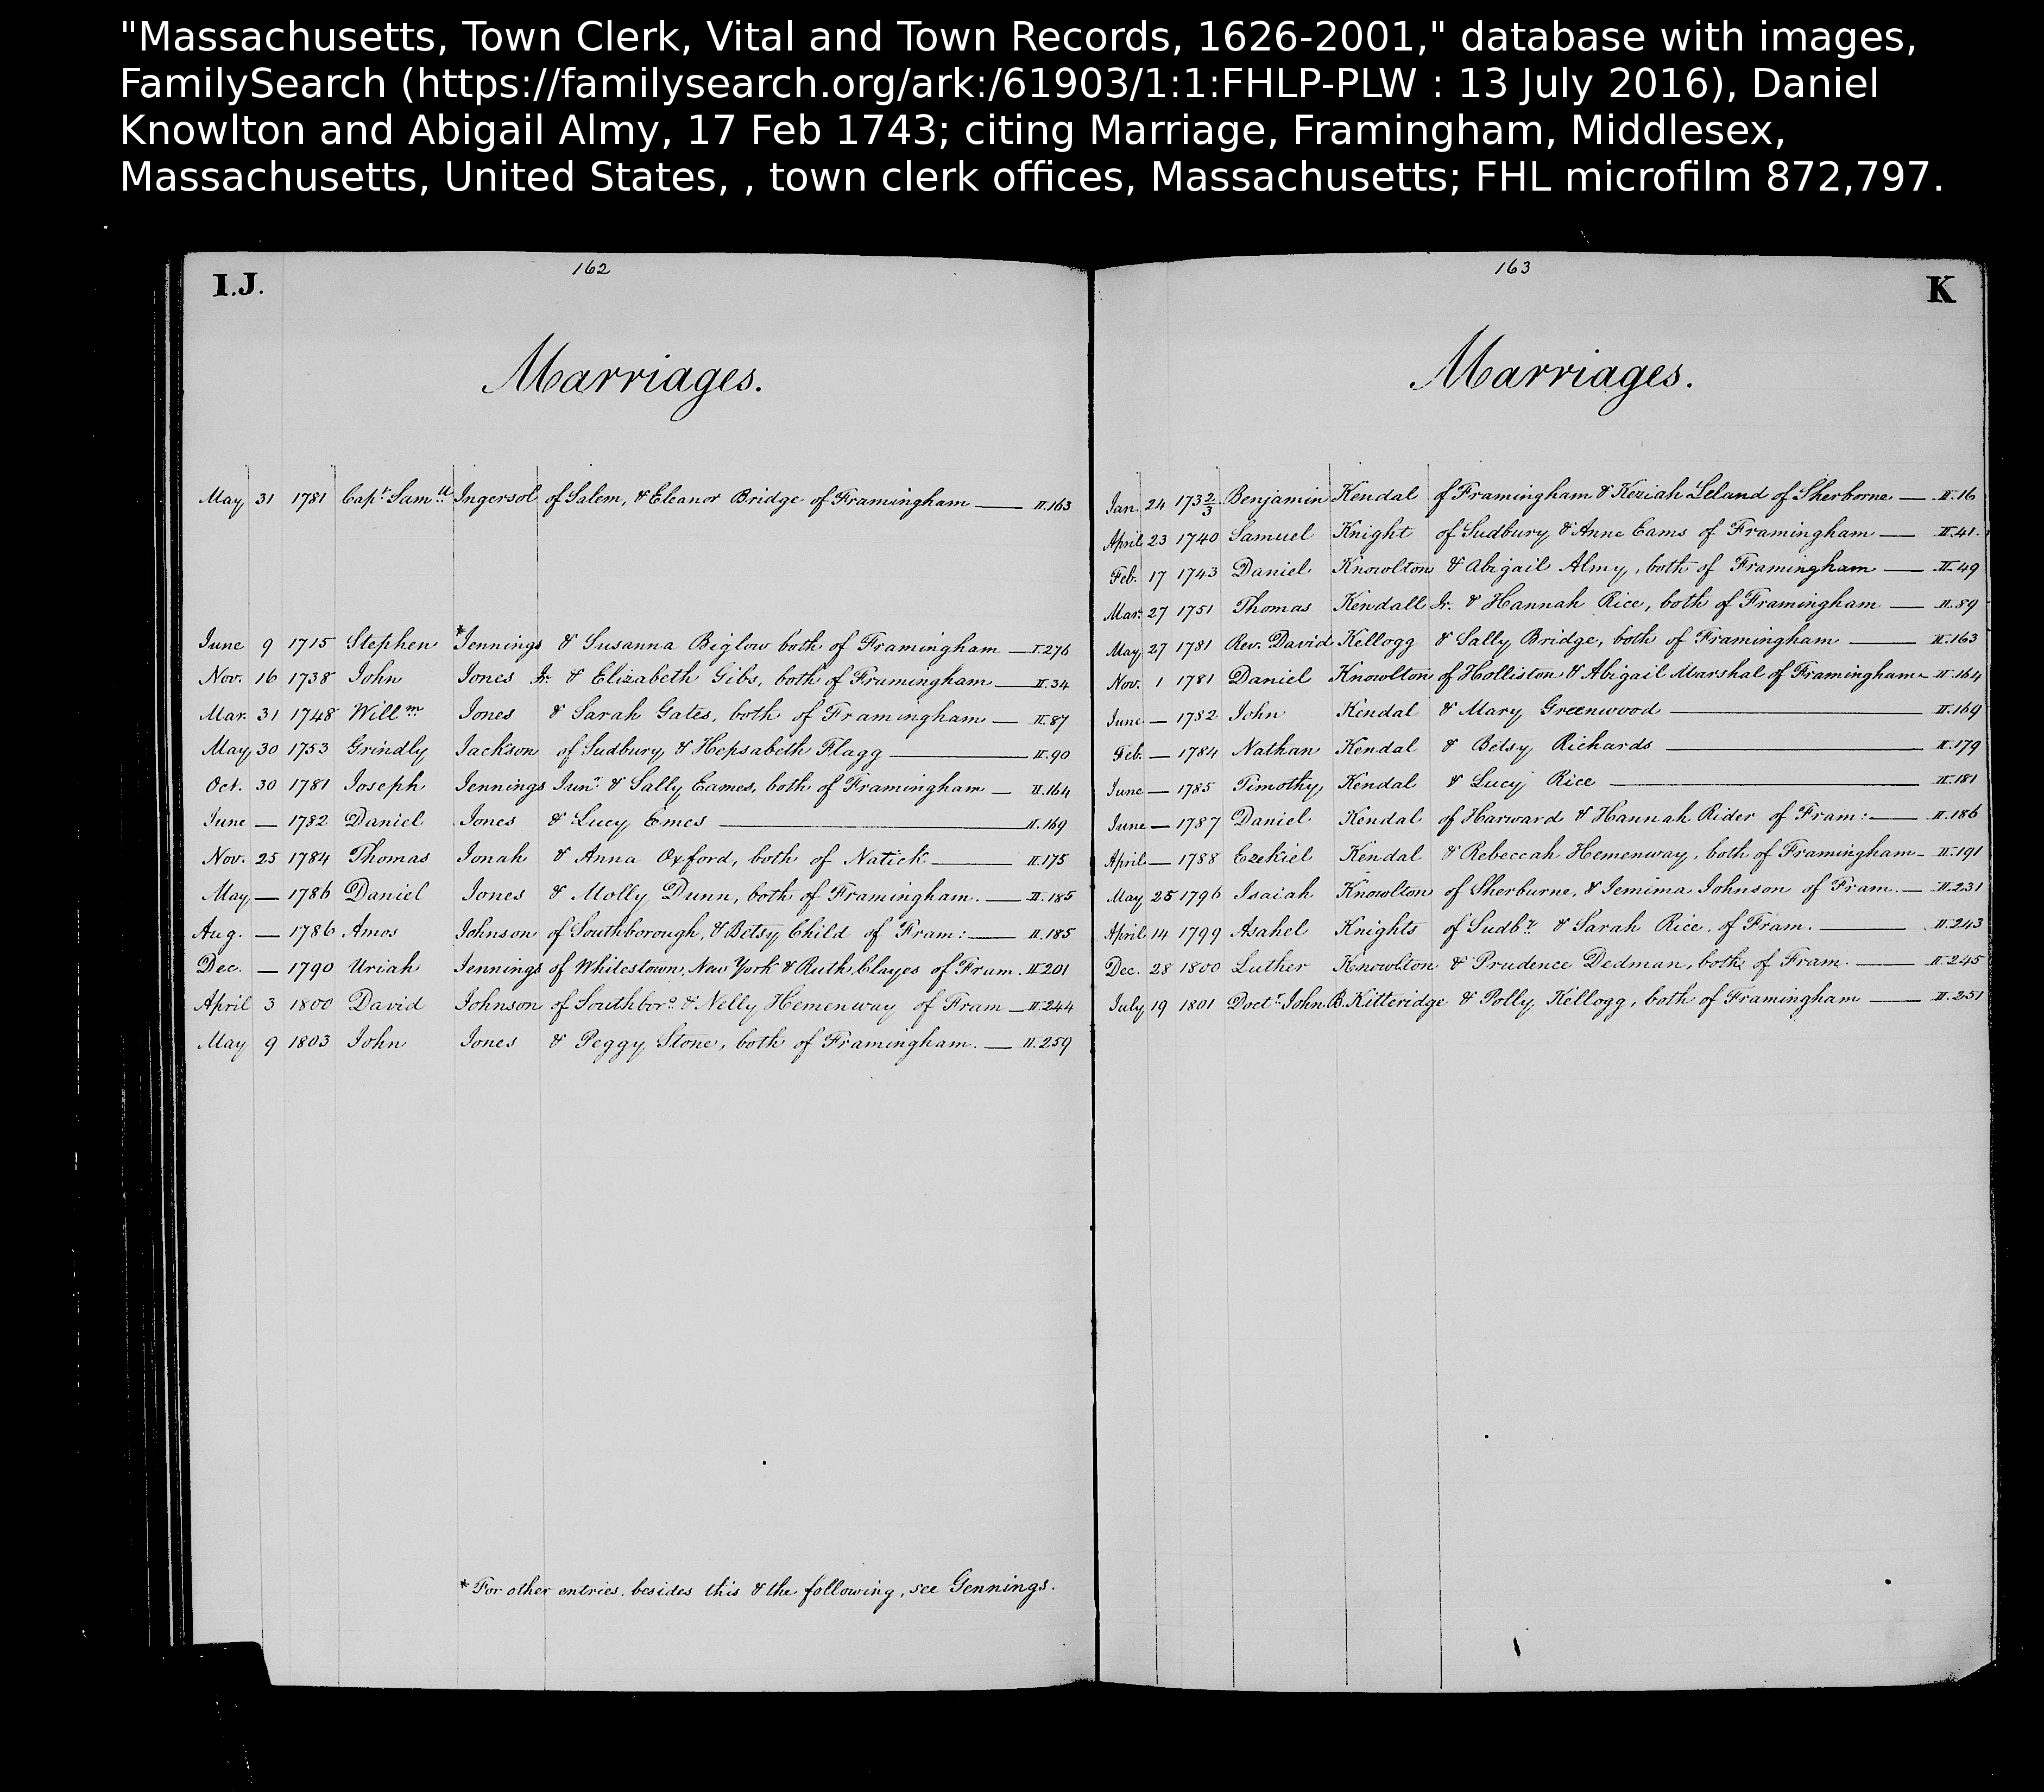 "Massachusetts, Town Clerk, Vital and Town Records, 1626-2001," database with images,
FamilySearch (https://familysearch.org/ark:/61903/1:1:FHLP-PLW : 13 July 2016), Daniel
Knowlton and Abigail Almy, 17 Feb 1743; citing Marriage, Framingham, Middlesex,
Massachusetts, United States, , town clerk offices, Massachusetts; FHL microfilm 872,797.
I.J.
162
Marriages.
May 31 1781 Capt. Samll. Ingersol of Salem, & Eleanor Bridge of Framingham — II.163
June 9 1715 Stephen *Jennings & Susanna Biglow both of Framingham — I.276
Nov. 16 1738 John Jones Jr. & Elizabeth Gibs, both of Framingham — II.34
Mar. 31 1748 Willm Jones & Sarah Gates, both of Framingham — II.87
May 30 1753 Grindly Jackson of Sudbury & Hepsabeth Flagg — II.90
Oct. 30 1781 Joseph Jennings Junr. & Sally Eames, both of Framingham — II.164
June — 1782 Daniel Jones & Lucy Emes — II.169
Nov. 25 1784 Thomas Jonah & Anna Oxford, both of Natick — II.175
May — 1786 Daniel Jones & Molly Dunn, both of Framingham. — II.185
Aug. — 1786 Amos Johnson of Southborough, & Betsy Child of Fram: — II.185
Dec. — 1790 Uriah Jennings of Whitestown, New York & Ruth Clayes of Fram. II.201
April 3 1800 David Johnson of Southboro. & Nelly Hemenway of Fram — II.244
May 9 1803 John Jones & Peggy Stone, both of Framingham. — II.259
* For other entries, besides this & the following, see Gennings.
163
K
Marriages.
Jan. 24 173 2/3 Benjamin Kendal of Framingham & Keziah Leland of Sherborne — II.16
April 23 1740 Samuel Knight of Sudbury & Anne Eams of Framingham — II.41.
Feb. 17 1743 Daniel Knowlton & Abigail Almy, both of Framingham — II.49
Mar. 27 1751 Thomas Kendall Jr. & Hannah Rice, both of Framingham — II.89
May 27 1781 Rev. David Kellogg & Sally Bridge, both of Framingham — II.163
Nov. 1 1781 Daniel Knowlton of Holliston & Abigail Marshal of Framingham — II.164
June — 1782 John Kendal & Mary Greenwood — II.169
Feb. — 1784 Nathan Kendal & Betsy Richards — II.179
June — 1785 Timothy Kendal & Lucy Rice — II.181
June — 1787 Daniel Kendal of Harward & Hannah Rider of Fram: — II.186
April — 1788 Ezekiel Kendal & Rebeccah Hemenway, both of Framingham — II.191
May 25 1796 Isaiah Knowlton of Sherburne, & Jemima Johnson of Fram. — II.231
April 14 1799 Asahel Knights of Sudby. & Sarah Rice of Fram. — II.243
Dec. 28 1800 Luther Knowlton & Prudence Dedman, both of Fram. — II.245
July 19 1801 Doctr. John B. Kitteridge & Polly Kellogg, both of Framingham — II.251